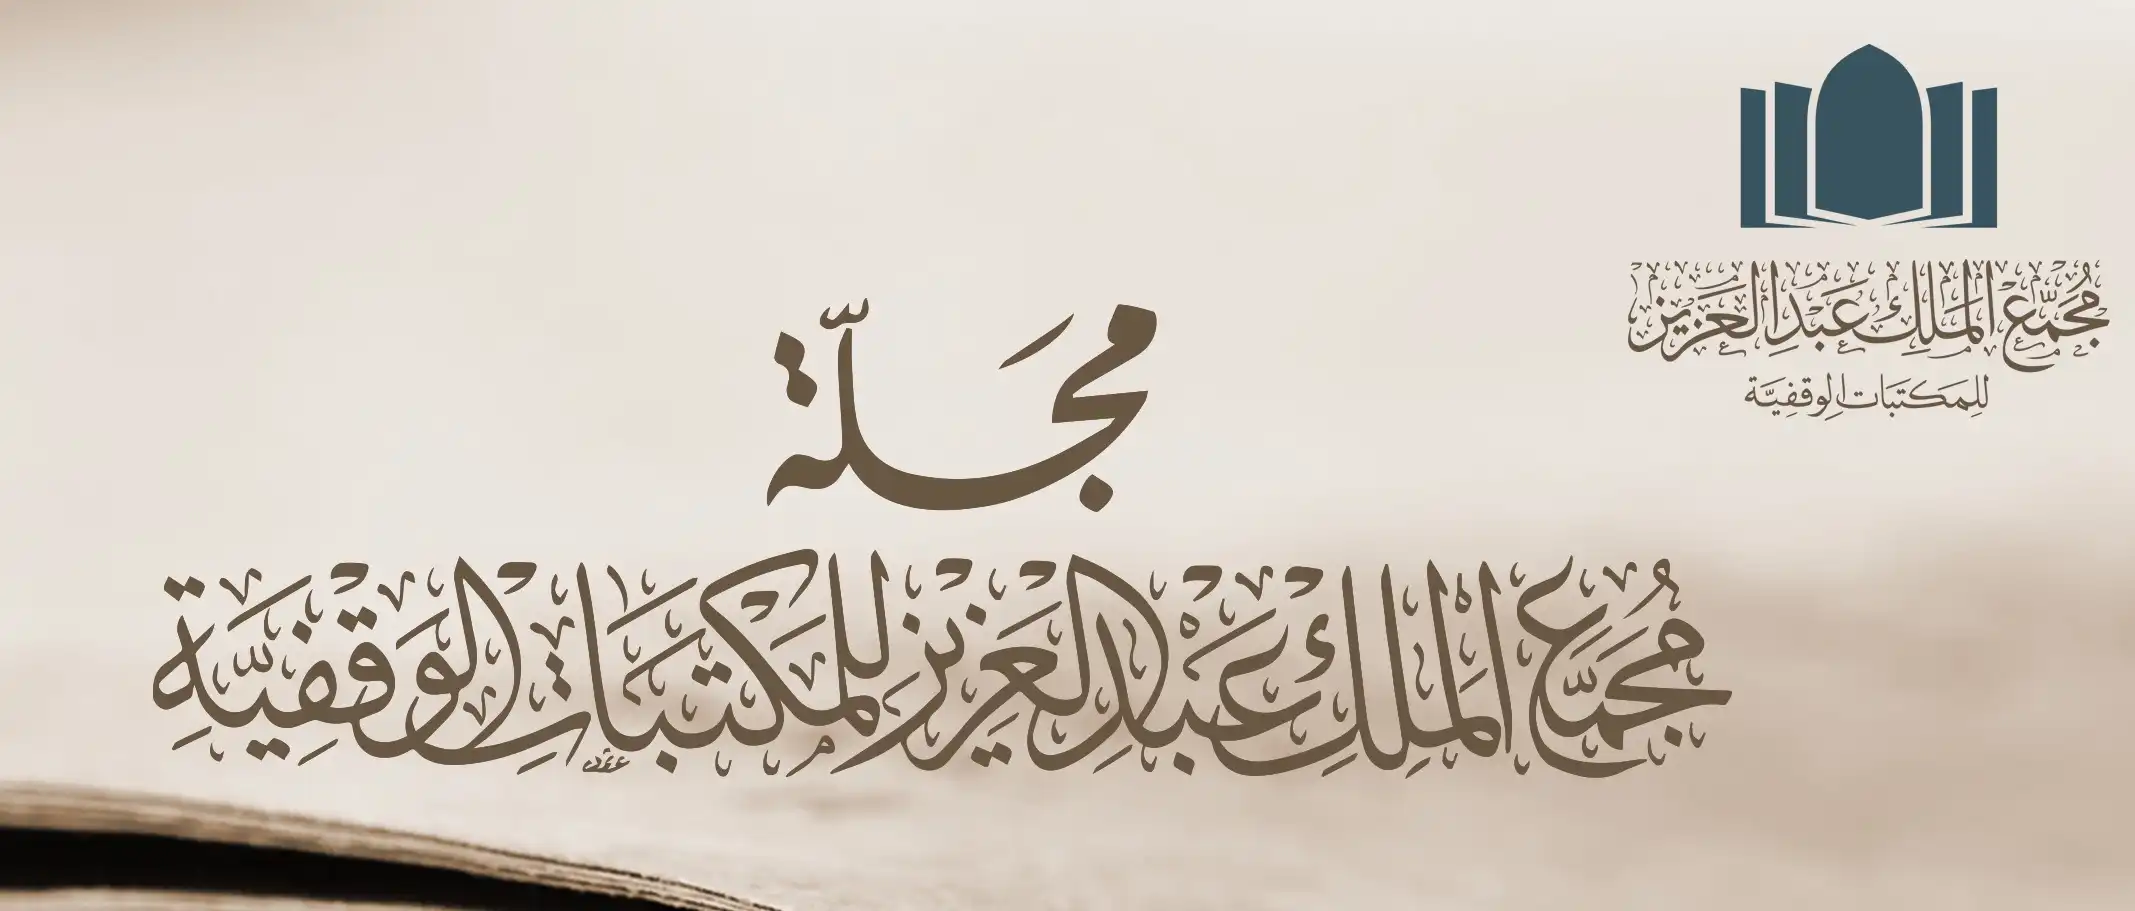 مُجَمَّع المَلِك عَبدِ العَزيز
لِلمَكتَبَات الوَقفِيَّة
مَجَلّة
مُجَمَّع المَلِك عَبدِ العَزِيز لِلمَكتَبَاتِ الوَقفِيَّةِ